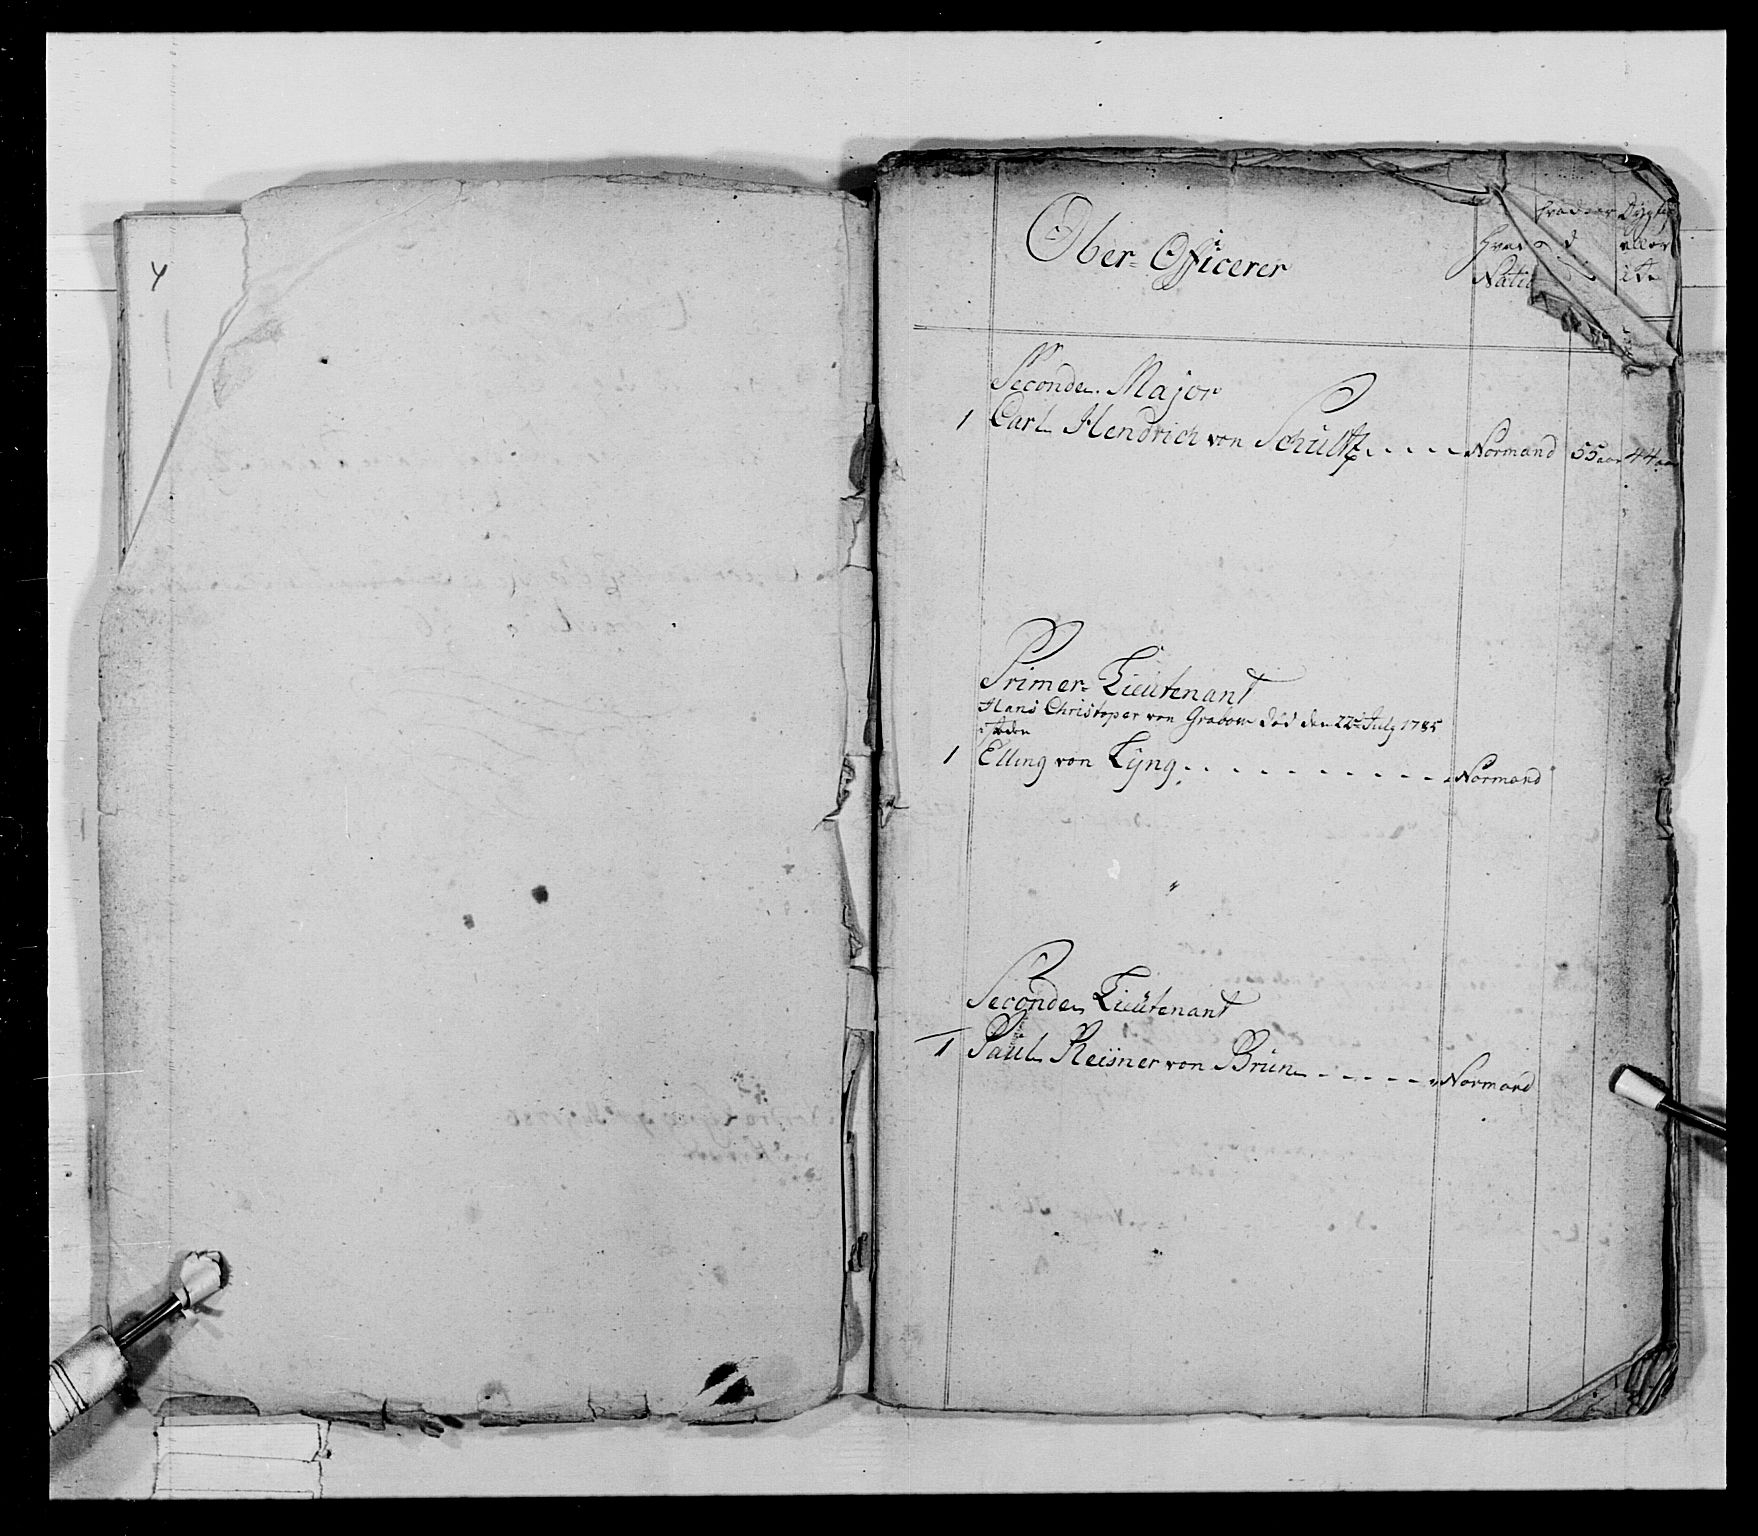 4
Ober- Officerer
Hvad
Natio
Dygtig
eller
Seconde Major
1 Carl Hendrich von Schultz . . . . Normand 55 aar 44 aar
Primer- Lieutenant
Hans Christoper von Grabow død den 22de July 1785
isteden
1 Elling von Lÿng . . . . . . . . . . . Normand
Seconde Lieutenant
1 Paul Reisner von Brün . . . . . . Normand